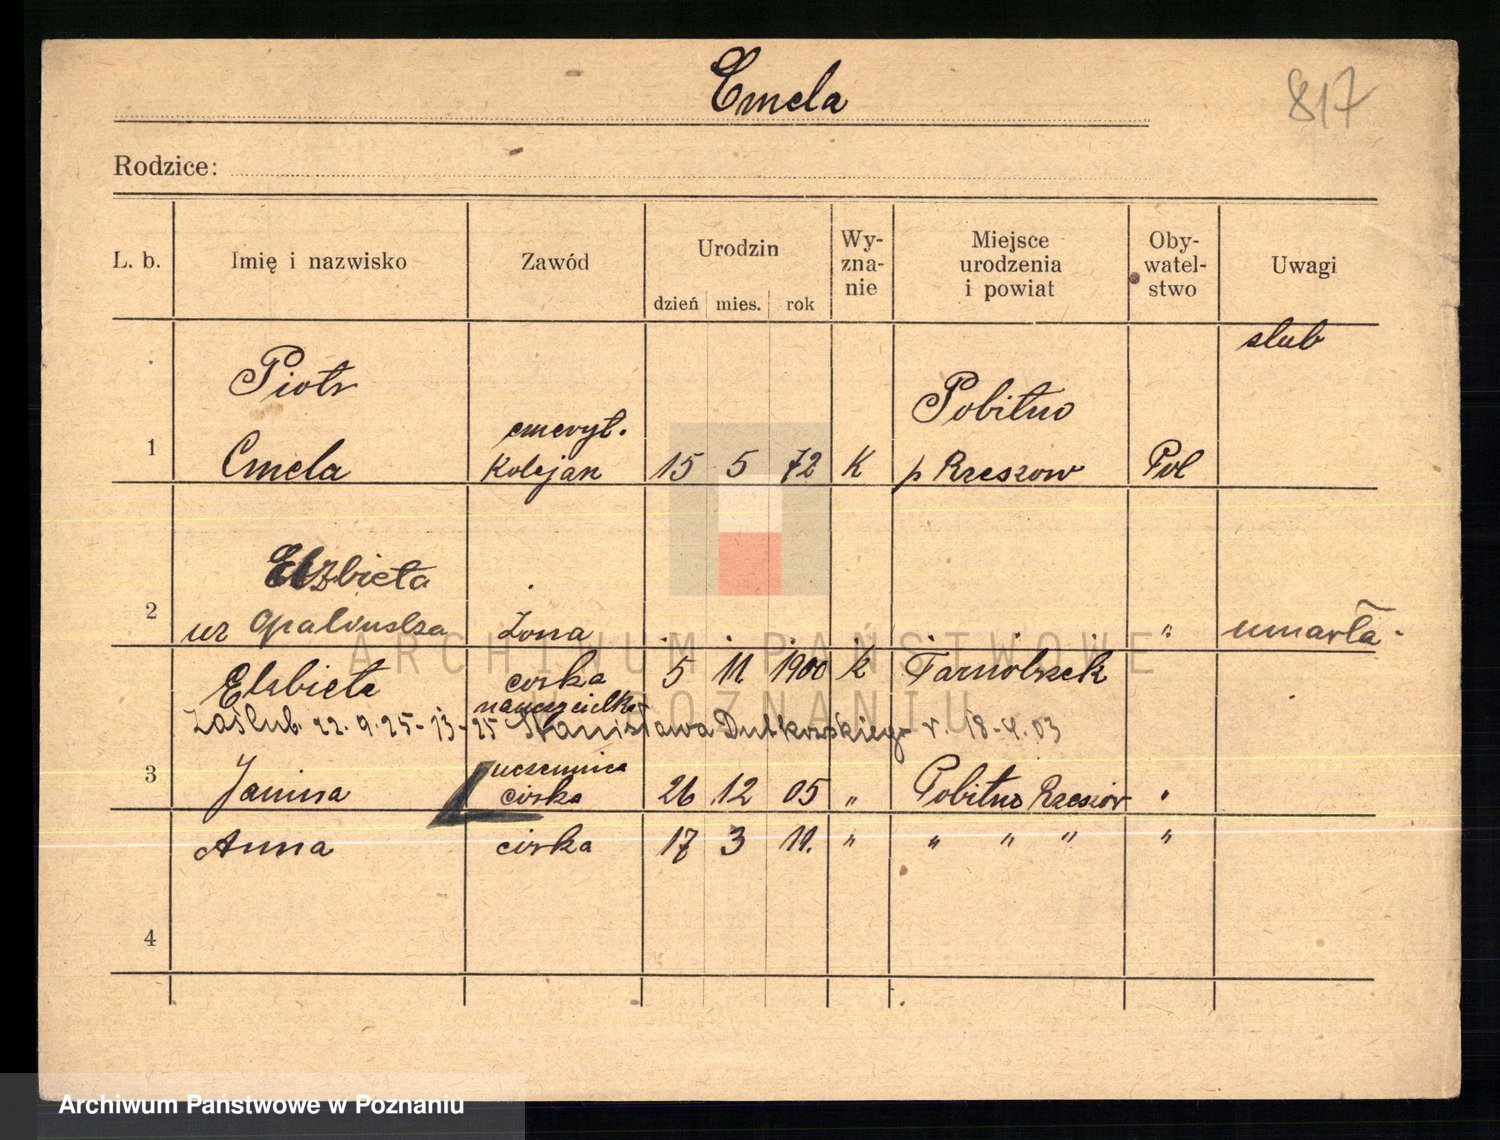 Cmela
817
Rodzice:
L. b. Imię i nazwisko Zawód Urodzin dzień mies. rok Wy-zna-nie Miejsce urodzenia i powiat Oby-watel-stwo Uwagi
slub
Piotr Pobitno
emeryt.
1 Cmela Kolejarz 15 5 72 K p Rzeszow Pol
Elzbieta
2 ur Żona " umarła
Elzbieta corka 5 11 1900 k Tarnobrzek
nauczycielka
Zaślub. 22. 9. 25 - 13 - 25 Stanisława Dutkowskiego r. 18-4.03
uczennica
3 Janina córka 26 12 05 " Pobitno Rzeszów "
Anna córka 17 3 11. " " " " "
4
ARCHIWUM PAŃSTWOWE
W POZNANIU
Archiwum Państwowe w Poznaniu